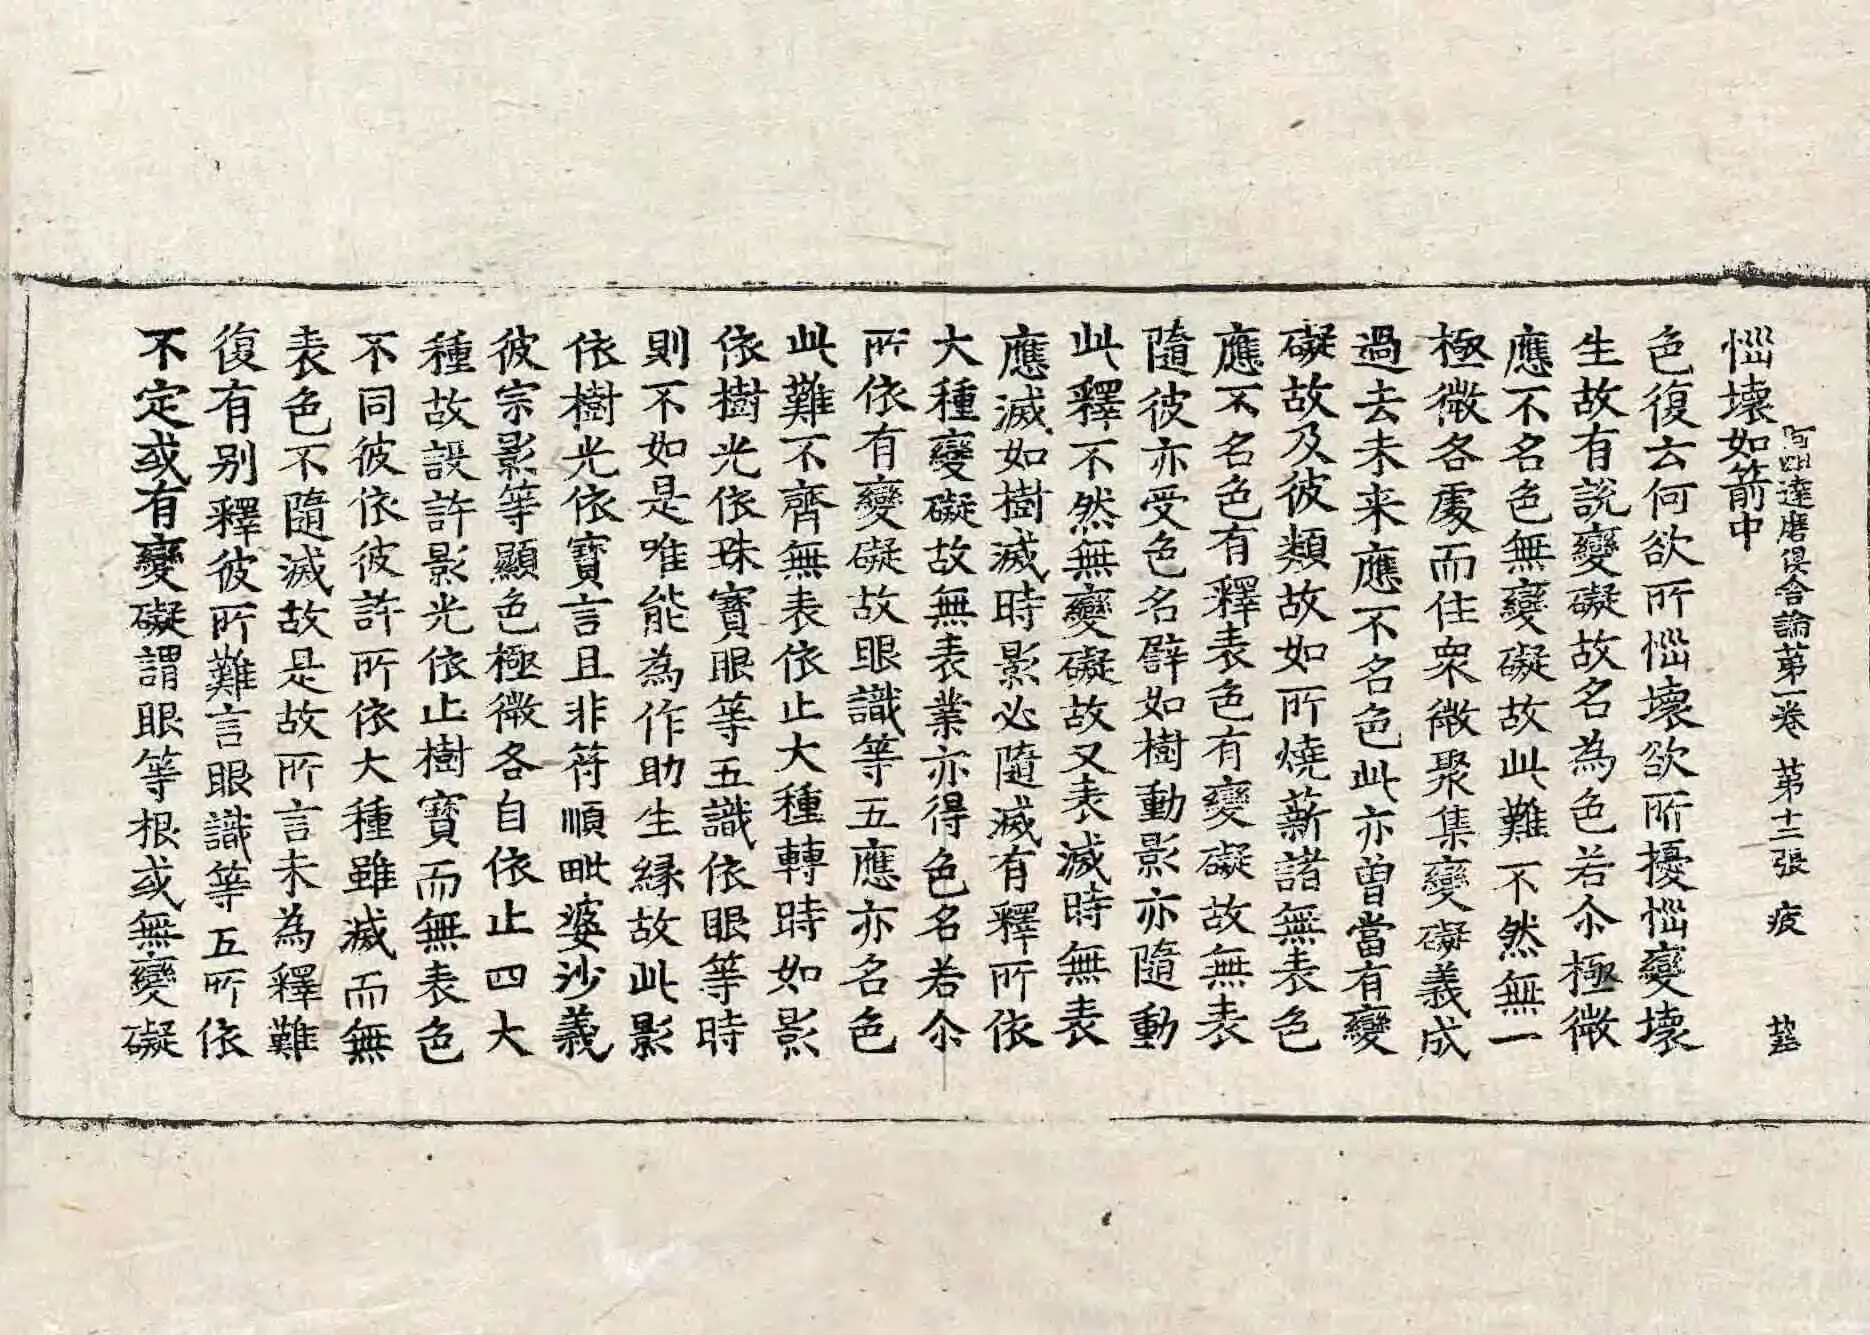 阿毗達磨俱舍論第一卷 第十二張 疲
惱壞如箭中
色復云何欲所惱壞欲所擾惱變壞
生故有說變礙故名為色若尒極微
應不名色無變礙故此難不然無一
極微各處而住衆微聚集變礙義成
過去未来應不名色此亦曽當有變
礙故及彼類故如所燒薪諸無表色
應不名色有釋表色有變礙故無表
隨彼亦受色名辟如樹動影亦隨動
此釋不然無變礙故又表滅時無表
應滅如樹滅時影必隨滅有釋所依
大種變礙故無表業亦得色名若尒
所依有變礙故眼識等五應亦名色
此難不齊無表依止大種轉時如影
依樹光依珠寶眼等五識依眼等時
則不如是唯能為作助生緣故此影
依樹光依寶言且非符順毗婆沙義
彼宗影等顯色極微各自依止四大
種故設許影光依止樹寶而無表色
不同彼依彼許所依大種雖滅而無
表色不隨滅故是故所言未為釋難
復有别釋彼所難言眼識等五所依
不定或有變礙謂眼等根或無變礙